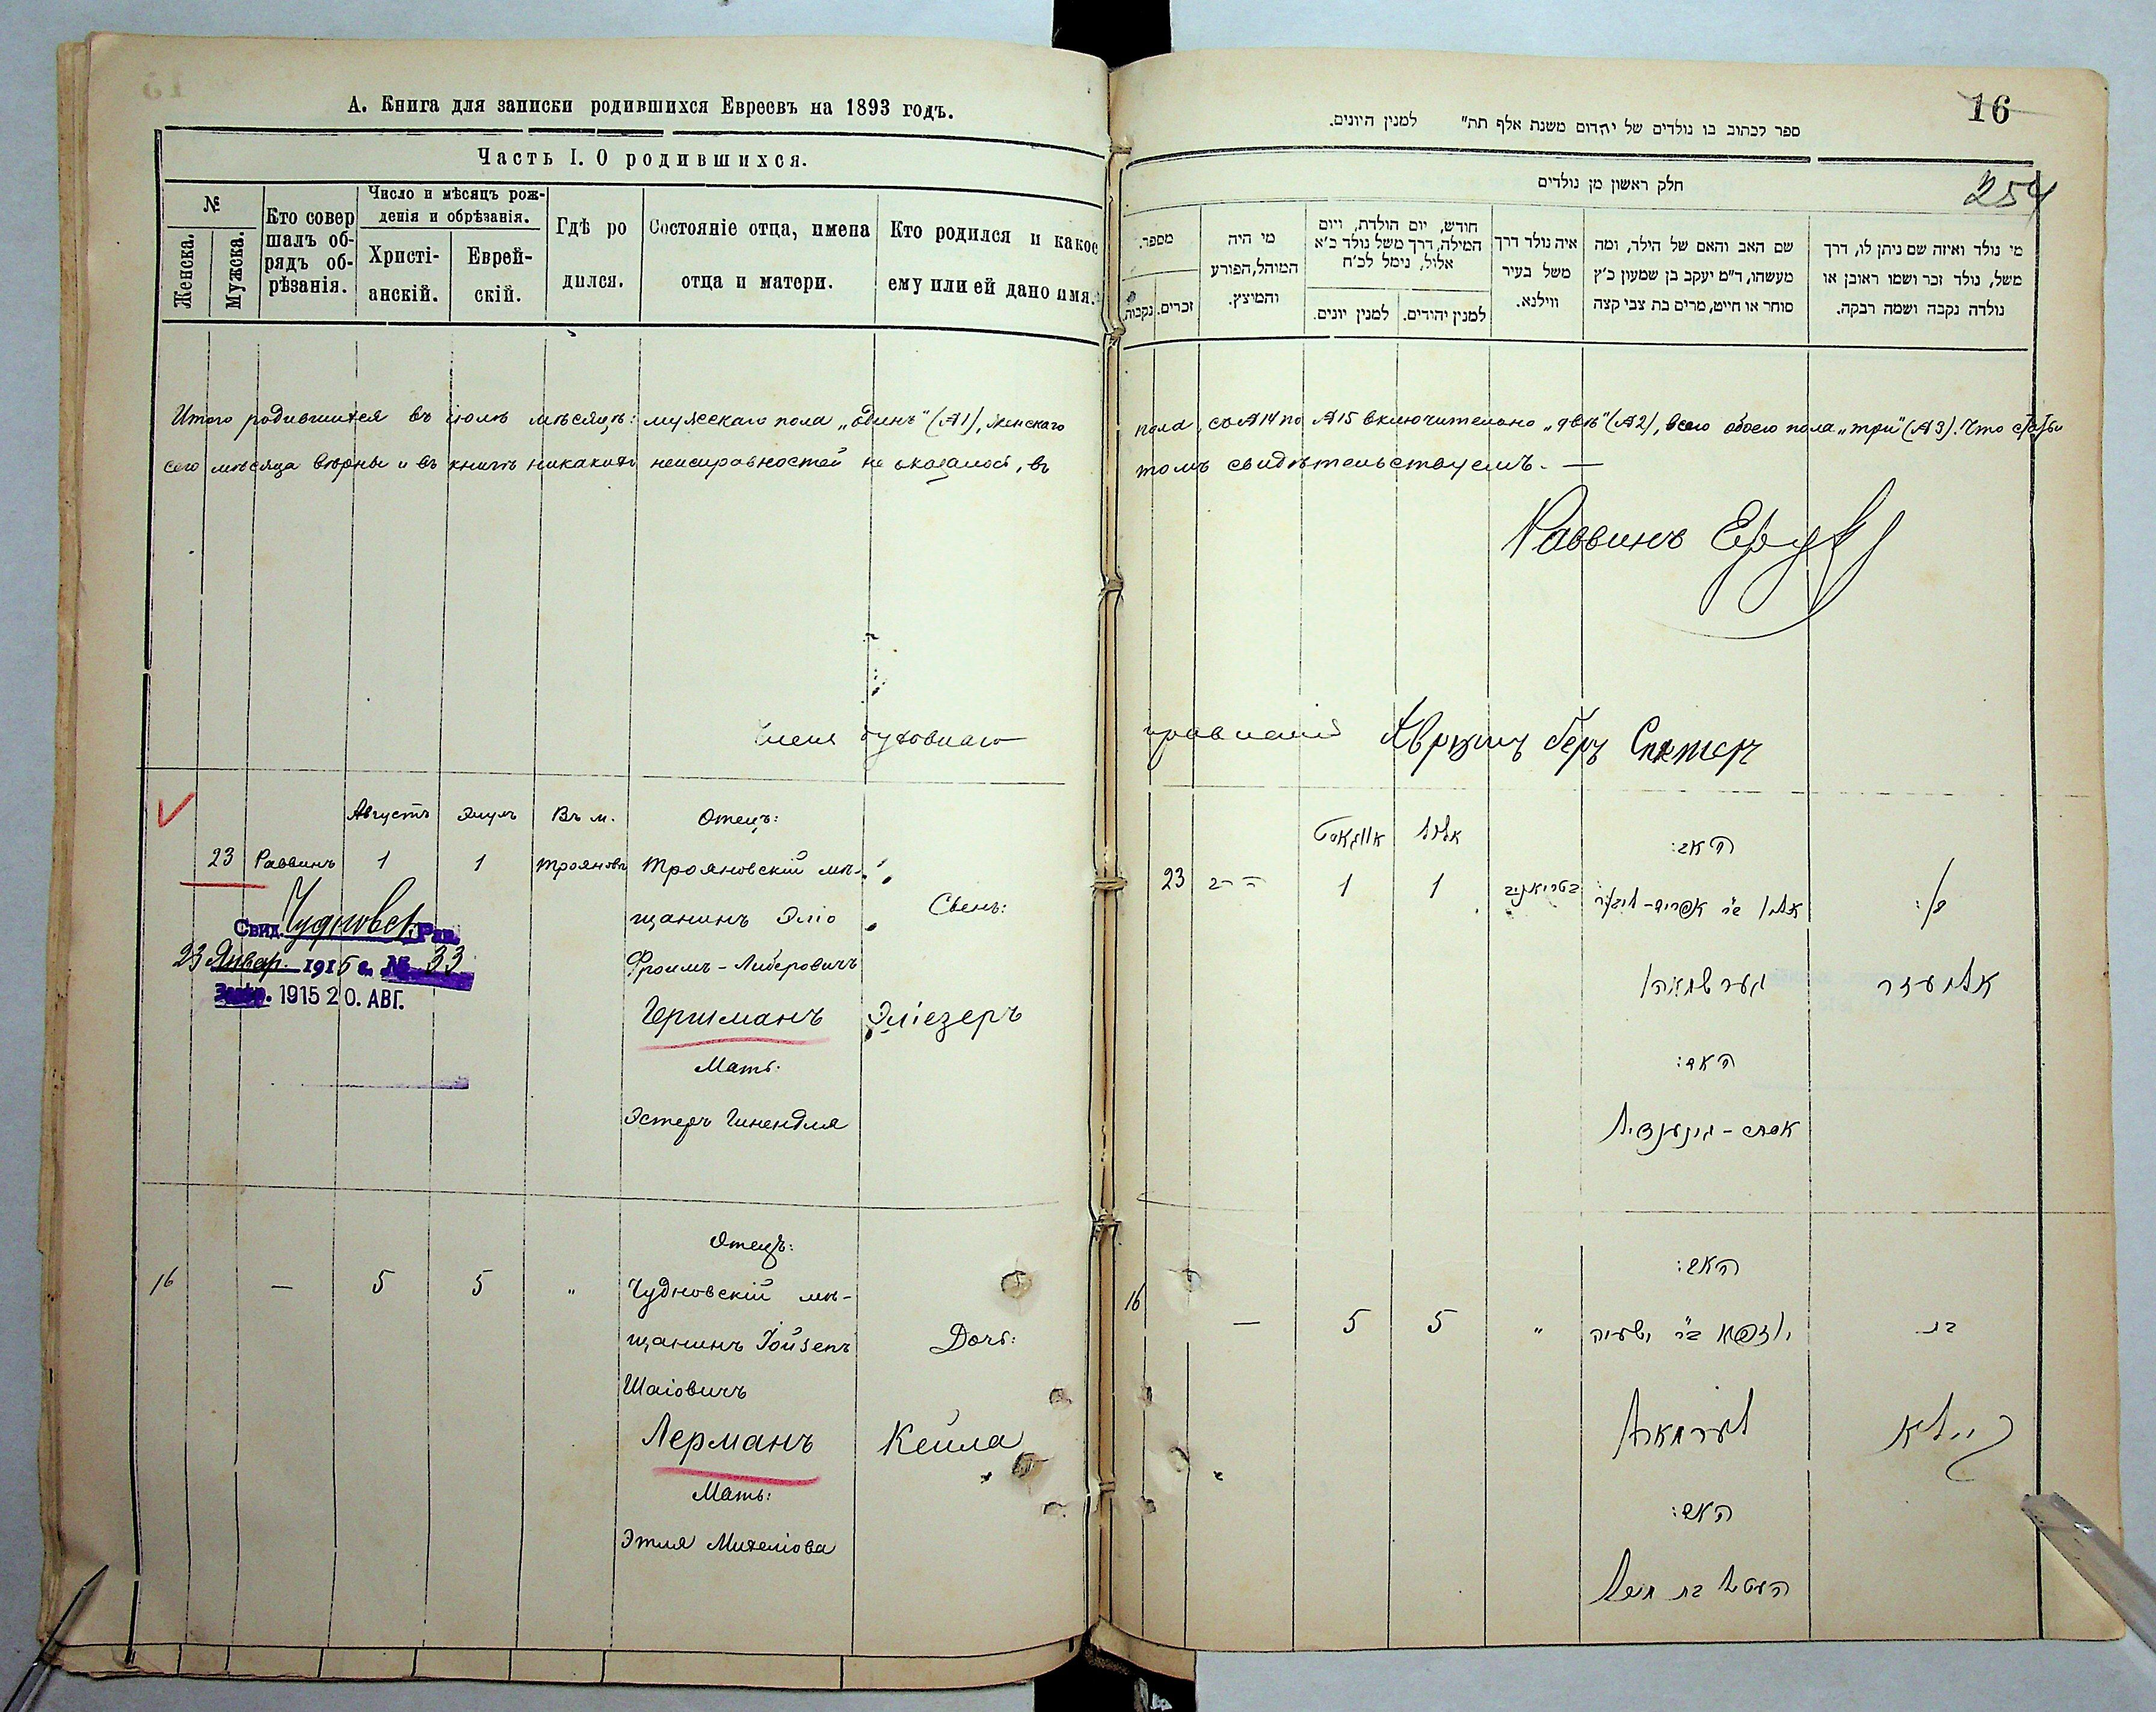 А. Книга для записки родившихся Евреевъ на 1893 годъ.
Часть I. О родившихся.
№
Женска.
Мужска.
Кто совер
шалъ об-
рядъ об-
рѣзанія.
Число и мѣсяцъ рож-
денія и обрѣзанія.
Христі-
анскій.
Еврей-
скій.
Гдѣ ро
дился.
Состояніе отца, имена
отца и матери.
Кто родился и какое
ему или ей дано имя.
Итого родившихся въ іюлѣ мѣсяцѣ: мужескаго пола „одинъ" (№1), женскаго
сего мѣсяца вѣрны и въ книгѣ никакихъ неисправностей не оказалось, въ
Члены духовнаго
Августъ Элулъ Въ м. Отецъ:
23 Раввинъ 1 1 Трояновѣ Трояновскій мѣ-
щанинъ Эліо Сынъ:
Фроимъ-Либеровичъ
Гершманъ Эліезеръ
Мать:
Эстеръ Гинендля
Свид. Чудновск. Рав.
23 Январ. 1915 г. № 33
1915 20. АВГ.
Отецъ:
16 — 5 5 " Чудновскій мѣ-
щанинъ Іойзепъ Дочь:
Шаіовичъ
Лерманъ Кейла
Мать:
Этля Михеліова
16
254
ספר לכתוב בו נולדים של יהדום משנת אלף תת" למנין היונים.
חלק ראשון מן נולדים
מספר.
נקבות.
זכרים.
מי היה
המוהל, הפורע
והמוצץ.
חודש, יום הולדת, ויום
המילה, דרך משל נולד כ'א
אלול, נימל לכ'ח
למנין יונים.
למנין יהודים.
איה נולד דרך
משל בעיר
ווילנא.
שם האב והאם של הילד, ומה
מעשהו, ד"מ יעקב בן שמעון כ'ץ
סוחר או חייט, מרים בת צבי קצה
מי נולד ואיזה שם ניתן לו, דרך
משל, נולד זכר ושמו ראובן או
נולדה נקבה ושמה רבקה.
пола, съ №14 по №15 включительно „двѣ" (№2), всего обоего пола „три" (№3). Что статьи
томъ свидѣтельствуемъ. —
Раввинъ
правленія Аврумъ Беръ Спекторъ
אויגאסט אלול האב:
23 1 1 בן:
גערשמאן אליעזר
האם:
אסתר - גינענדיל
האב:
16 — 5 5 " יוזפא ב"ר ישעיה בת
לערמאן קיילא
האם: